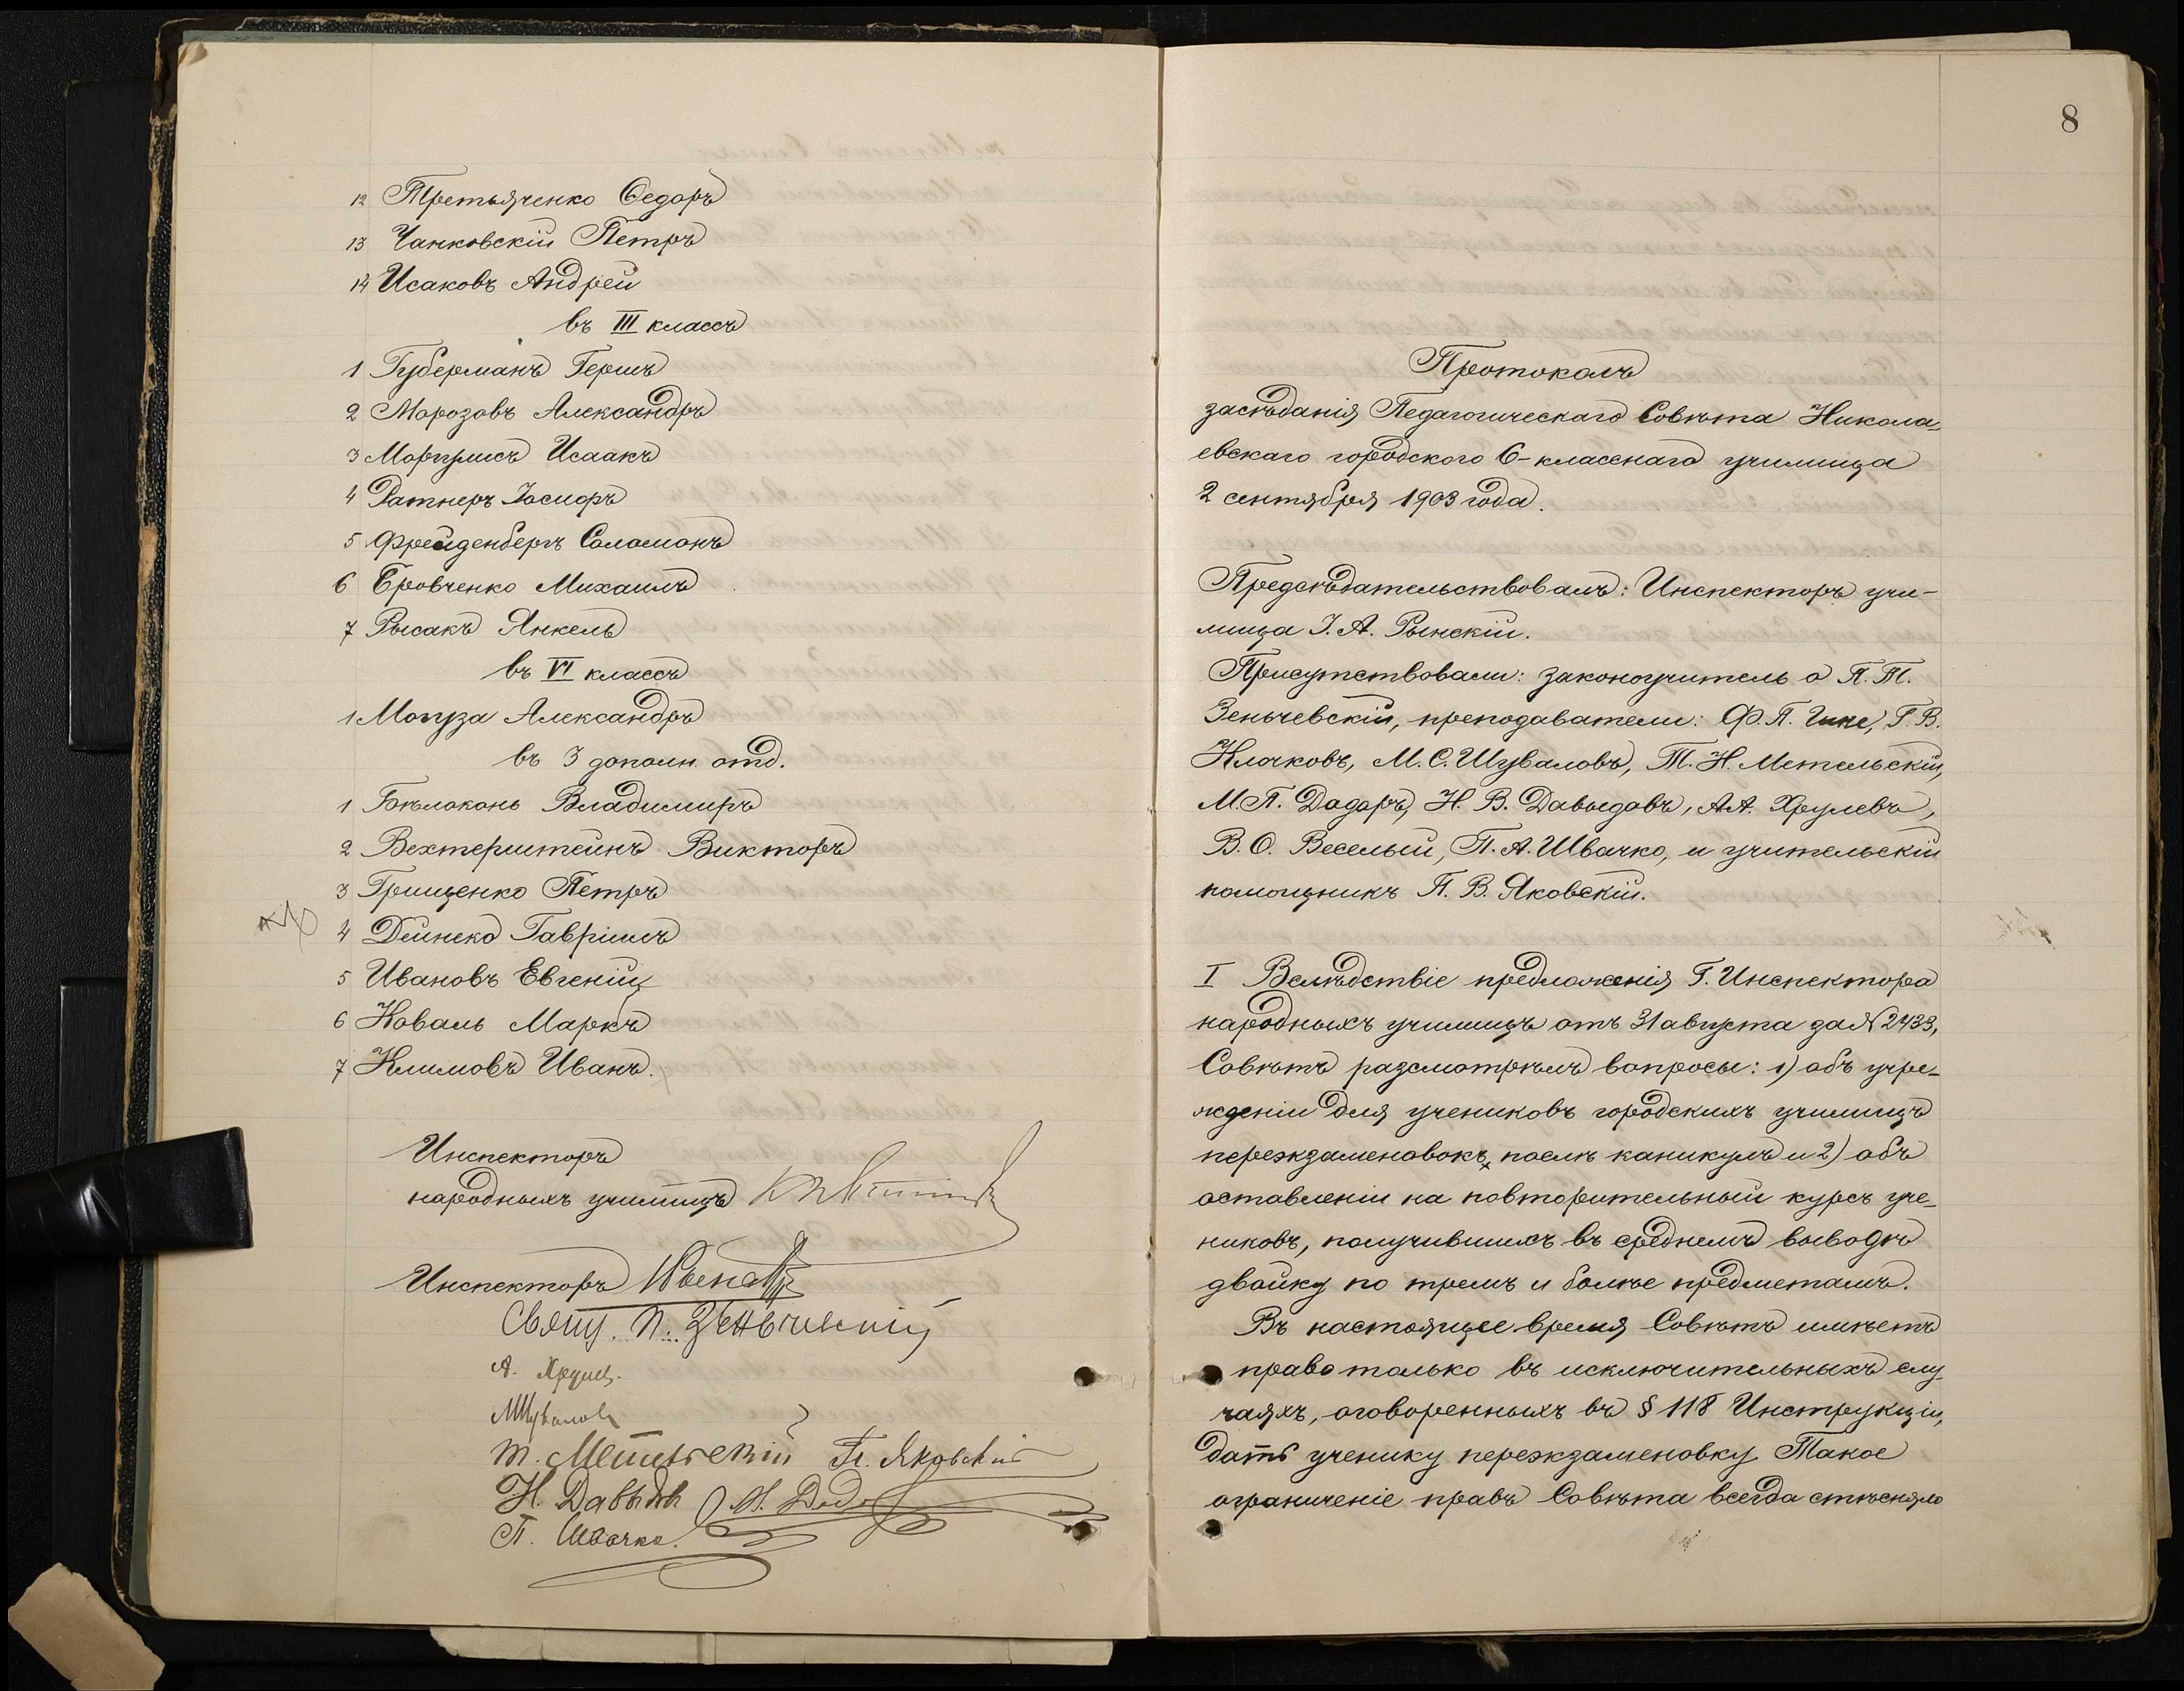 12 Третьяченко Ѳедоръ
13 Чанковскій Петръ
14 Исаковъ Андрей
въ III классъ
1 Губерманъ Гершъ
2 Морозовъ Александръ
3 Моргулисъ Исаакъ
4 Ратнеръ Іосифъ
5 Фрейденбергъ Соломонъ
6 Бровченко Михаилъ
7 Рысакъ Янкель
въ VI классъ
1 Могуза Александръ
въ 3 дополн. отд.
1 Бѣлоконь Владимиръ
2 Вехтерштейнъ Викторъ
3 Грищенко Петръ
4 Дейнеко Гавріилъ
5 Ивановъ Евгеній
6 Коваль Маркъ
7 Климовъ Иванъ.
Инспекторъ
народныхъ училищъ
Инспекторъ
Свящ. П. Зеньчевскій
А. Хрулев.
МШувалов
Т. Метельскій П. Яковскій
Н. Давыдов М. Додор
П. Швачко.
8
Протоколъ
засѣданія Педагогическаго Совѣта Никола-
евскаго городского 6-класснаго училища
2 сентября 1903 года.
Предсѣдательствовалъ: Инспекторъ учи-
лища І. А. Рынскій.
Присутствовали: законоучитель о П. Т.
Зеньчевскій, преподаватели: Ф. П. Г. В.
Клочковъ, М. С. Шуваловъ, Т. Н. Метельскій,
М. П. Додоръ, Н. В. Давыдовъ, А. А. Хрулевъ,
В. О. Веселый, П. А. Швачко, и учительскій
помощникъ П. В. Яковскій.
I Вслѣдствіе предложенія Г. Инспектора
народныхъ училищъ отъ 31 августа за № 2433,
Совѣтъ разсмотрѣлъ вопросы: 1) объ учре-
жденіи для учениковъ городскихъ училищъ
переэкзаменовокъ послѣ каникулъ и 2) объ
оставленіи на повторительный курсъ уче-
никовъ, получившихъ въ среднемъ выводѣ
двойку по тремъ и болѣе предметамъ.
Въ настоящее время Совѣтъ имѣетъ
право только въ исключительныхъ слу
чаяхъ, оговоренныхъ въ § 118 Инструкціи,
дать ученику переэкзаменовку. Такое
ограниченіе правъ Совѣта всегда стѣсняло